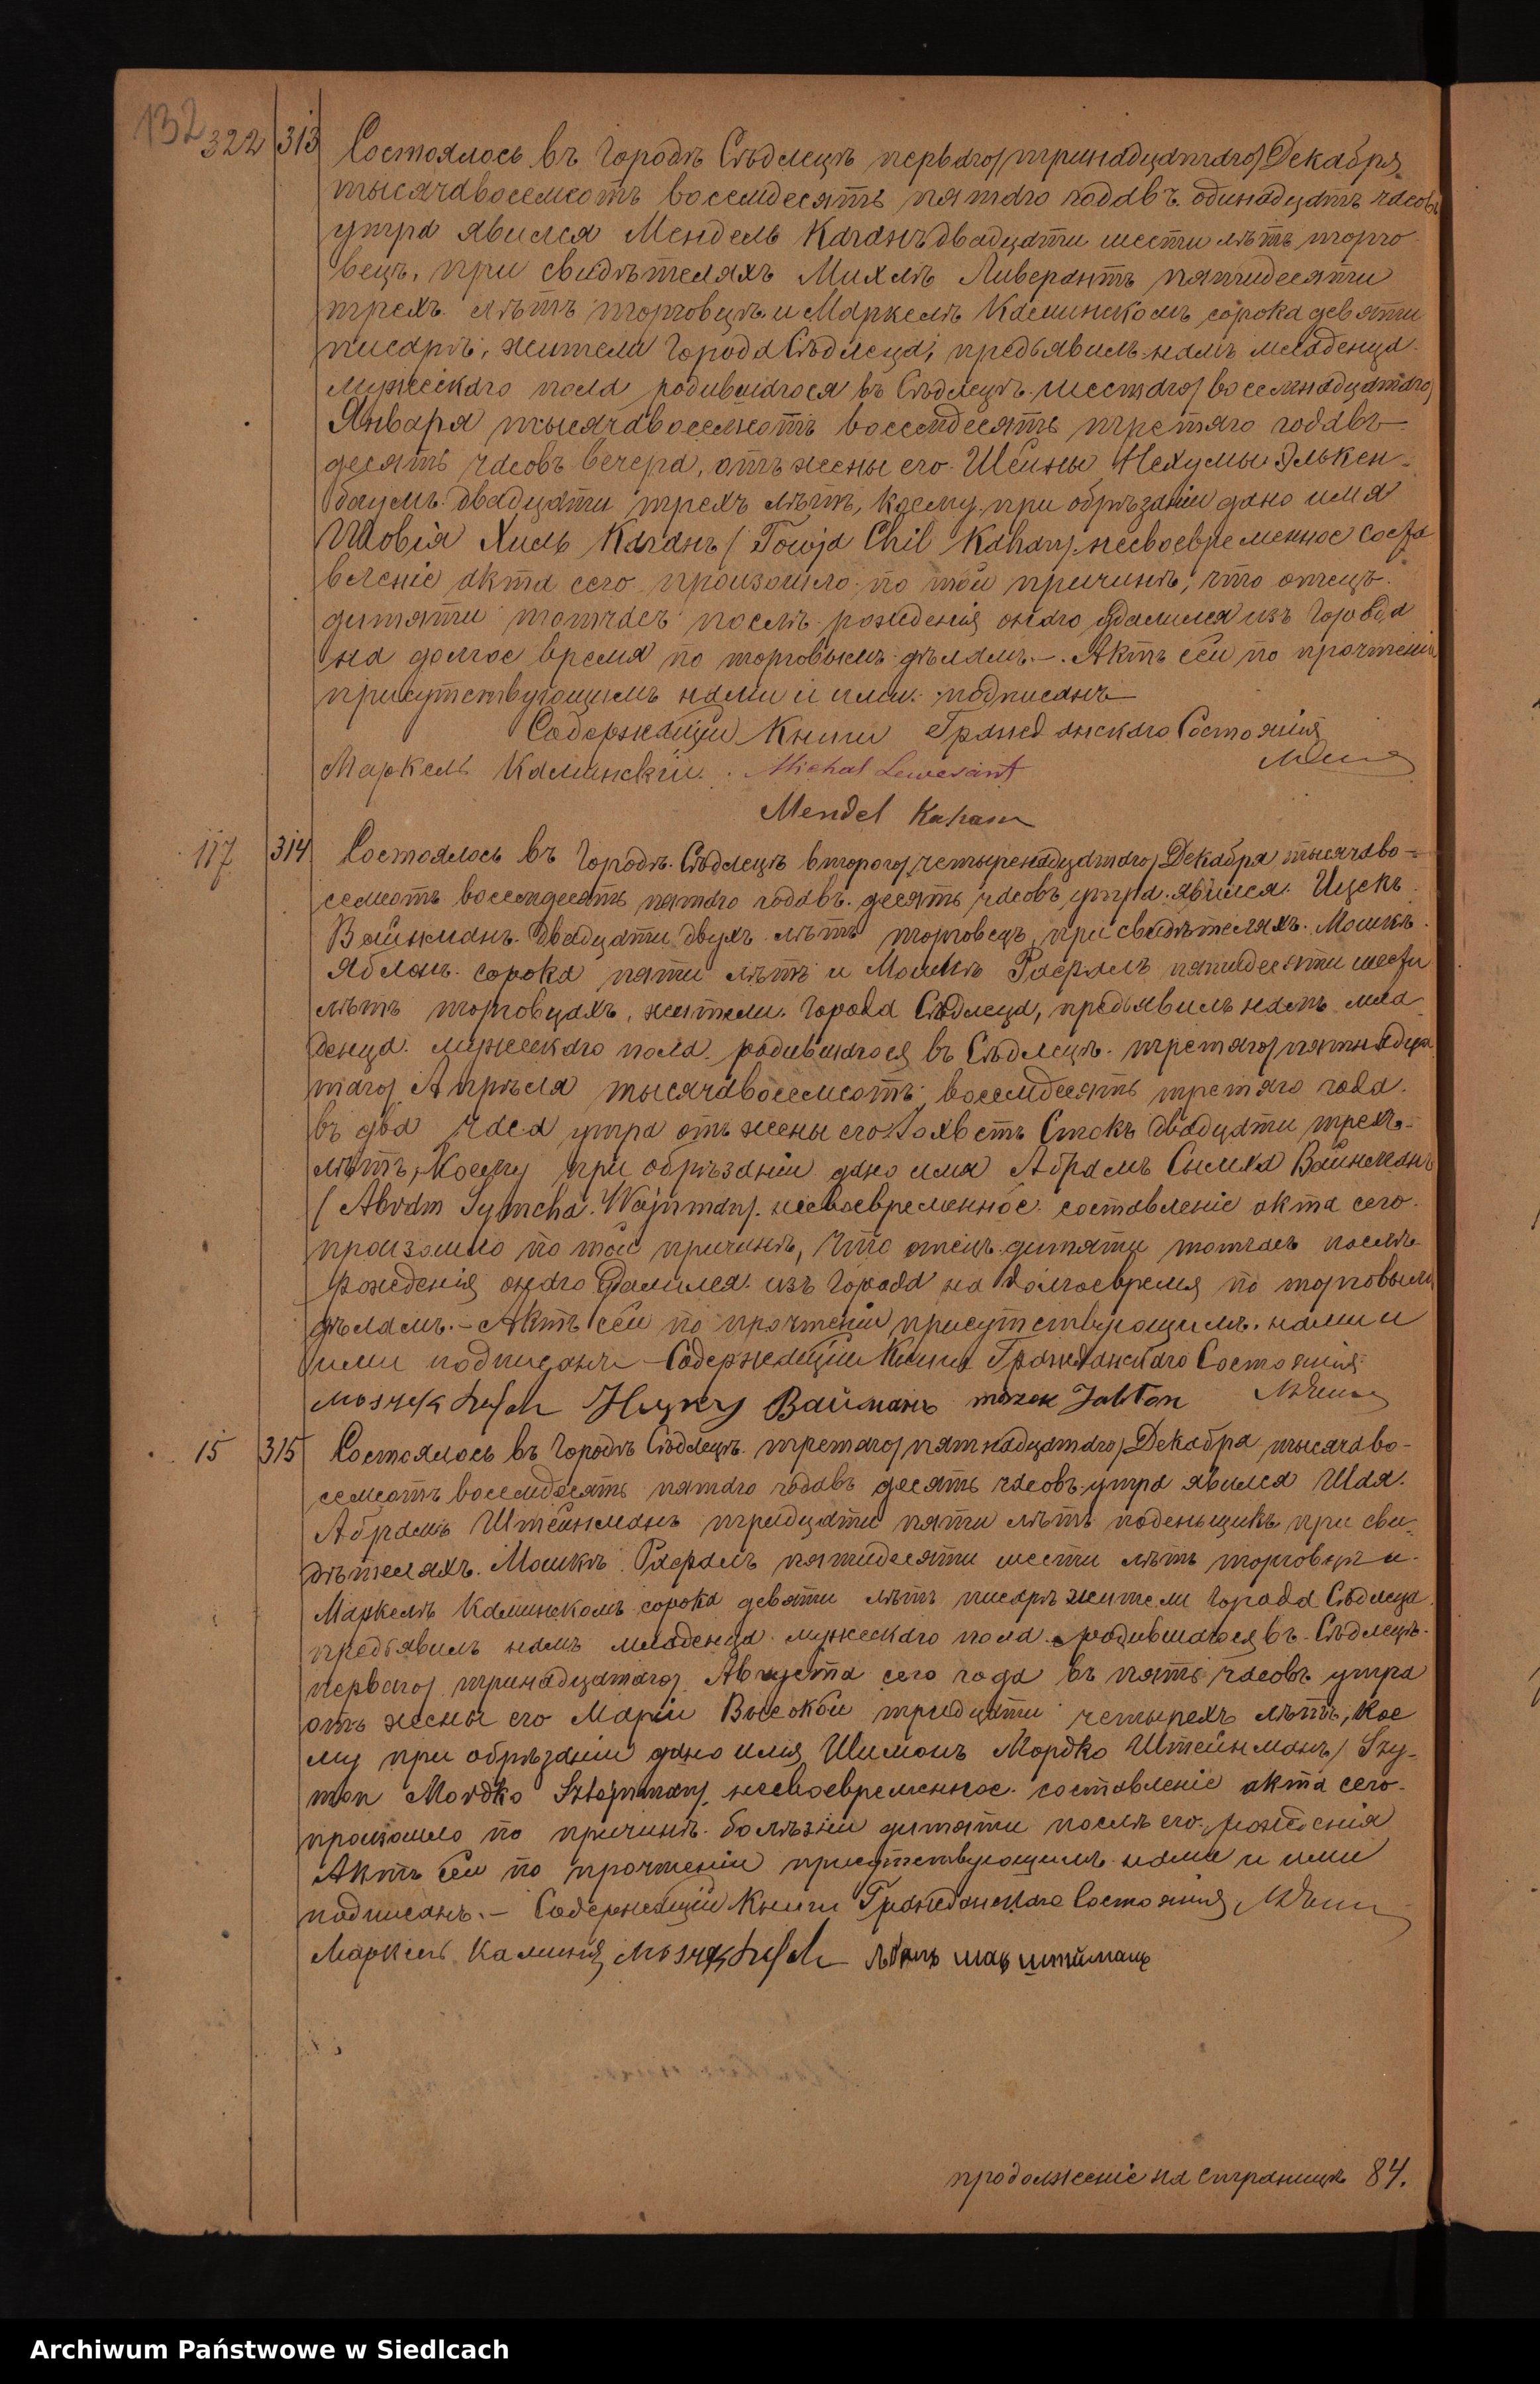 132
322 313 Состоялось въ городѣ Сѣдлецѣ перваго/тринадцатаго/Декабря
тысячавосемсотъ восемдесятъ пятаго года въ одинадцать часовъ
утра явился Мендель Каганъ двадцати шести лѣтъ торго-
вецъ, при свидѣтеляхъ Михлѣ Ливерантъ пятидесяти
трехъ лѣтъ торговцѣ и Маркелѣ Каминскомъ сорока девяти
писарѣ, жители города Сѣдлеца, предъявилъ намъ младенца
мужескаго пола родившагося въ Сѣдлецѣ шестаго/восемнадцатаго/
Января тысячавосемсотъ восемдесятъ третяго года въ
десять часовъ вечера, отъ жены его Шейны Нехумы Элькен-
баумъ двадцати трехъ лѣтъ, коему при обрѣзаніи дано имя
Товія Хиль Каганъ /Towja Chil Kahan/. несвоевременное соста
вленіе акта сего произошло по той причинѣ, что отецъ
дитяти тотчасъ послѣ рожденія онаго удалился изъ города
на долгое время по торговымъ дѣламъ.-. Актъ сей по прочтеніи
присутствующимъ нами и ими подписанъ
Содержащій Книги Гражданскаго Состоянія
Маркель Каминскій. Michal Lewerant
Mendel Kahan
117 314 Состоялось въ городѣ Сѣдлецѣ втораго/четыренадцатаго/Декабря тысячаво-
семсотъ восемдесятъ пятаго года въ десять часовъ утра явился Ицекъ
Вайнманъ двадцати двухъ лѣтъ торговецъ, при свидѣтеляхъ Мошкѣ
Яблонъ сорока пяти лѣтъ и Мошкѣ пятидесяти шести
лѣтъ торговцахъ, жители города Сѣдлеца, предъявилъ намъ мла
денца мужескаго пола родившагося въ Сѣдлецѣ третяго/пятнадца
таго/ Апрѣля тысячавосемсотъ восемдесятъ третяго года
въ два часа утра отъ жены его Стокъ двадцати трехъ
лѣтъ, Коему при обрѣзаніи дано имя Абрамъ Сымха Вайнманъ
/Abram Symcha Wajnman/. несвоевременное составленіе акта сего
произошло по той причинѣ, что отецъ дитяти тотчасъ послѣ
рожденія онаго удалился изъ города на долгое время по торговымъ
дѣламъ.- Актъ сей по прочтеніи присутствующимъ нами и
ими подписанъ - Содержащій Книги Гражданскаго Состоянія
Ицку Вайманъ Jabłon
15 315 Состоялось въ городѣ Сѣдлецѣ третяго/пятнадцатаго/Декабря тысячаво-
семсотъ восемдесятъ пятаго года въ десять часовъ утра явился Шая
Абрамъ Штейнманъ тридцати пяти лѣтъ поденьщикъ при сви-
дѣтеляхъ Мошкѣ пятидесяти шести лѣтъ торговцѣ и
Маркелѣ Каминскомъ сорока девяти лѣтъ писарѣ жители города Сѣдлеца
предъявилъ намъ младенца мужескаго пола родившагося въ Сѣдлецѣ
перваго/тринадцатаго/ Августа сего года въ пять часовъ утра
отъ жены его Маріи Высокой тридцати четырехъ лѣтъ, кое
му при обрѣзаніи дано имя Шимонъ Мордко Штейнманъ/ Szy-
mon Mordko Sztejnman/. несвоевременное составленіе акта сего
произошло по причинѣ болѣзни дитяти послѣ его рожденія
Актъ сей по прочтеніи присутствующимъ нами и ими
подписанъ.- Содержащій Книги Гражданскаго Состоянія
Маркель Каминскій
продолженіе на страницѣ 84.
Archiwum Państwowe w Siedlcach